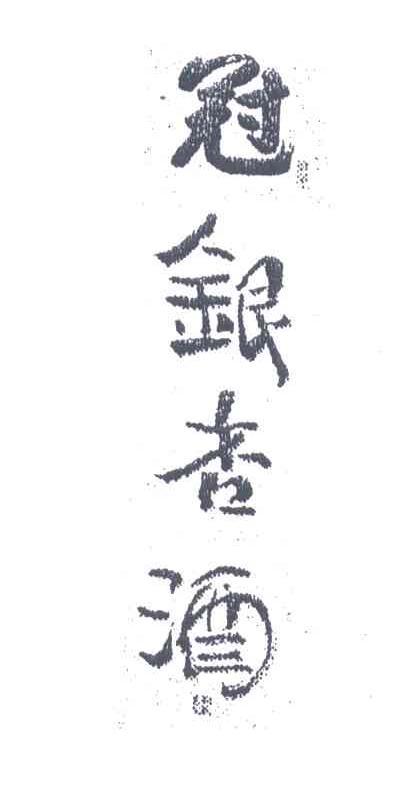 冠銀杏酒